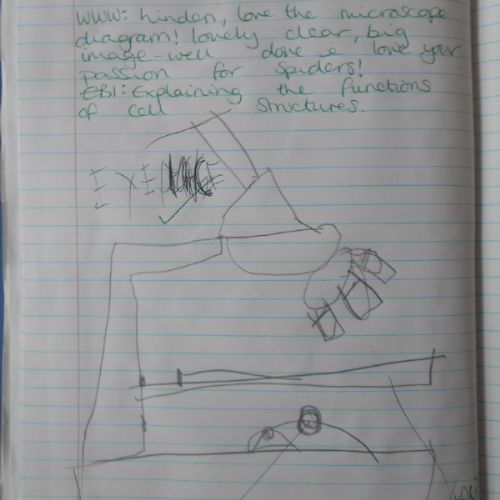 WWW: hinden, love the microscope
diagram! lovely clear, big
image - well done & love your
passion for spiders!
EBI: Explaining the functions
of cell structures.